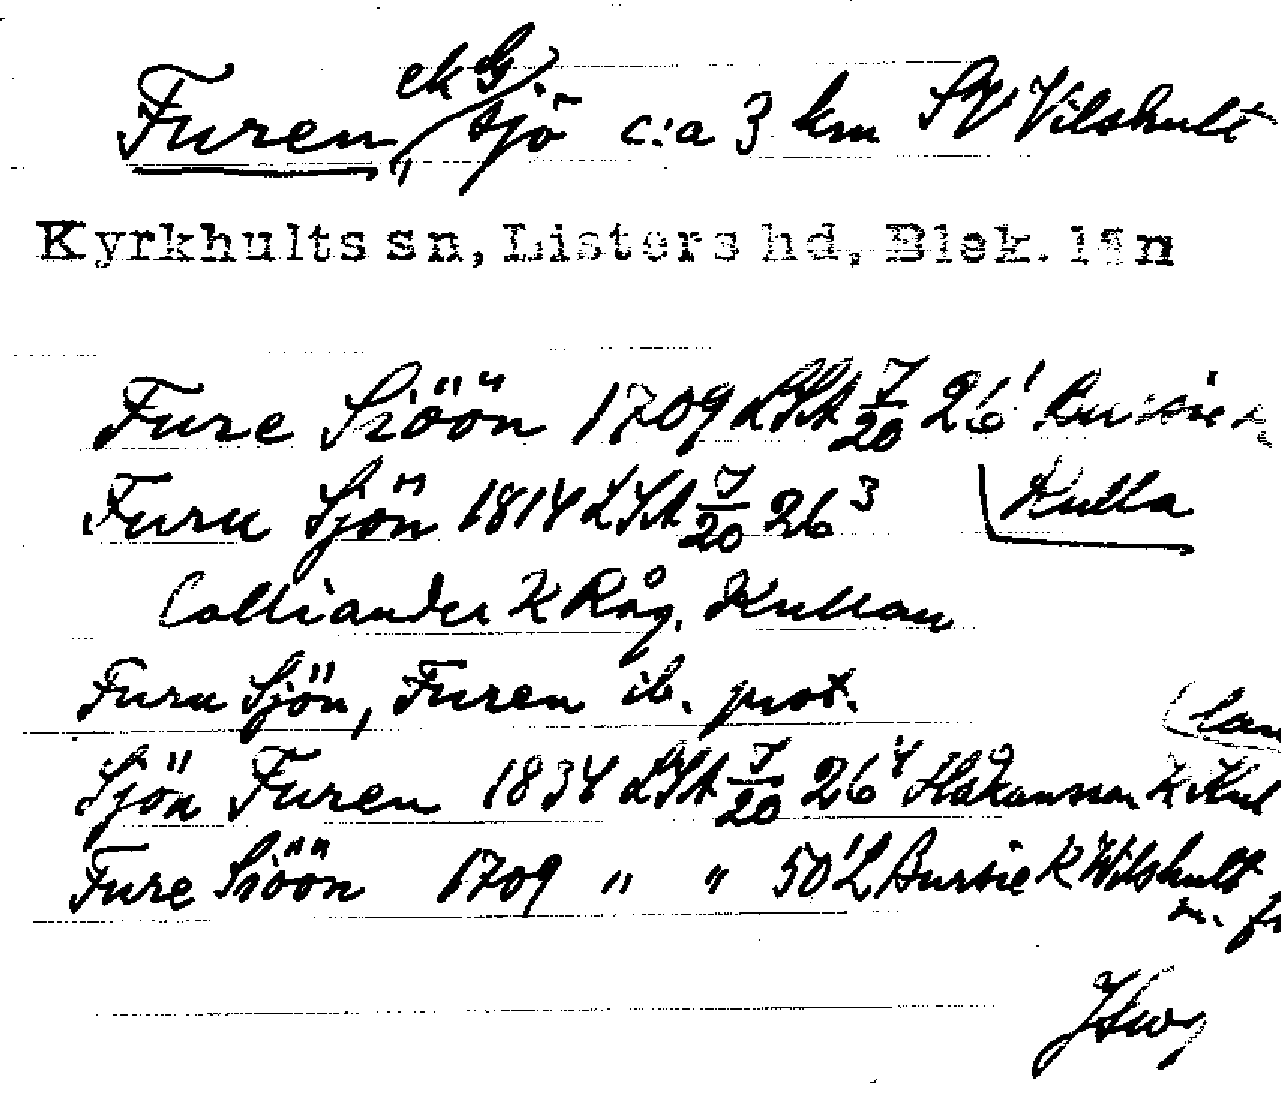 ek G.
Furen, sjö c:a 3 km SV Vilshult
Kyrkhults sn, Listers hd, Blek. län
Fure Siöön 1709 LSA 7/20 26¹ Bursie K
Kulla
Furu Sjön 1814 LSA 7/20 26³
Colliander K Råg. Kullan
Furu Sjön, Furen ib. prot.
Sjön Furen 1834 LSA 7/20 26⁴ Håkansson K Kul
(lan
Fure Siöön 1709 " " 50¹ L Bursie K Wilshult
m. fl